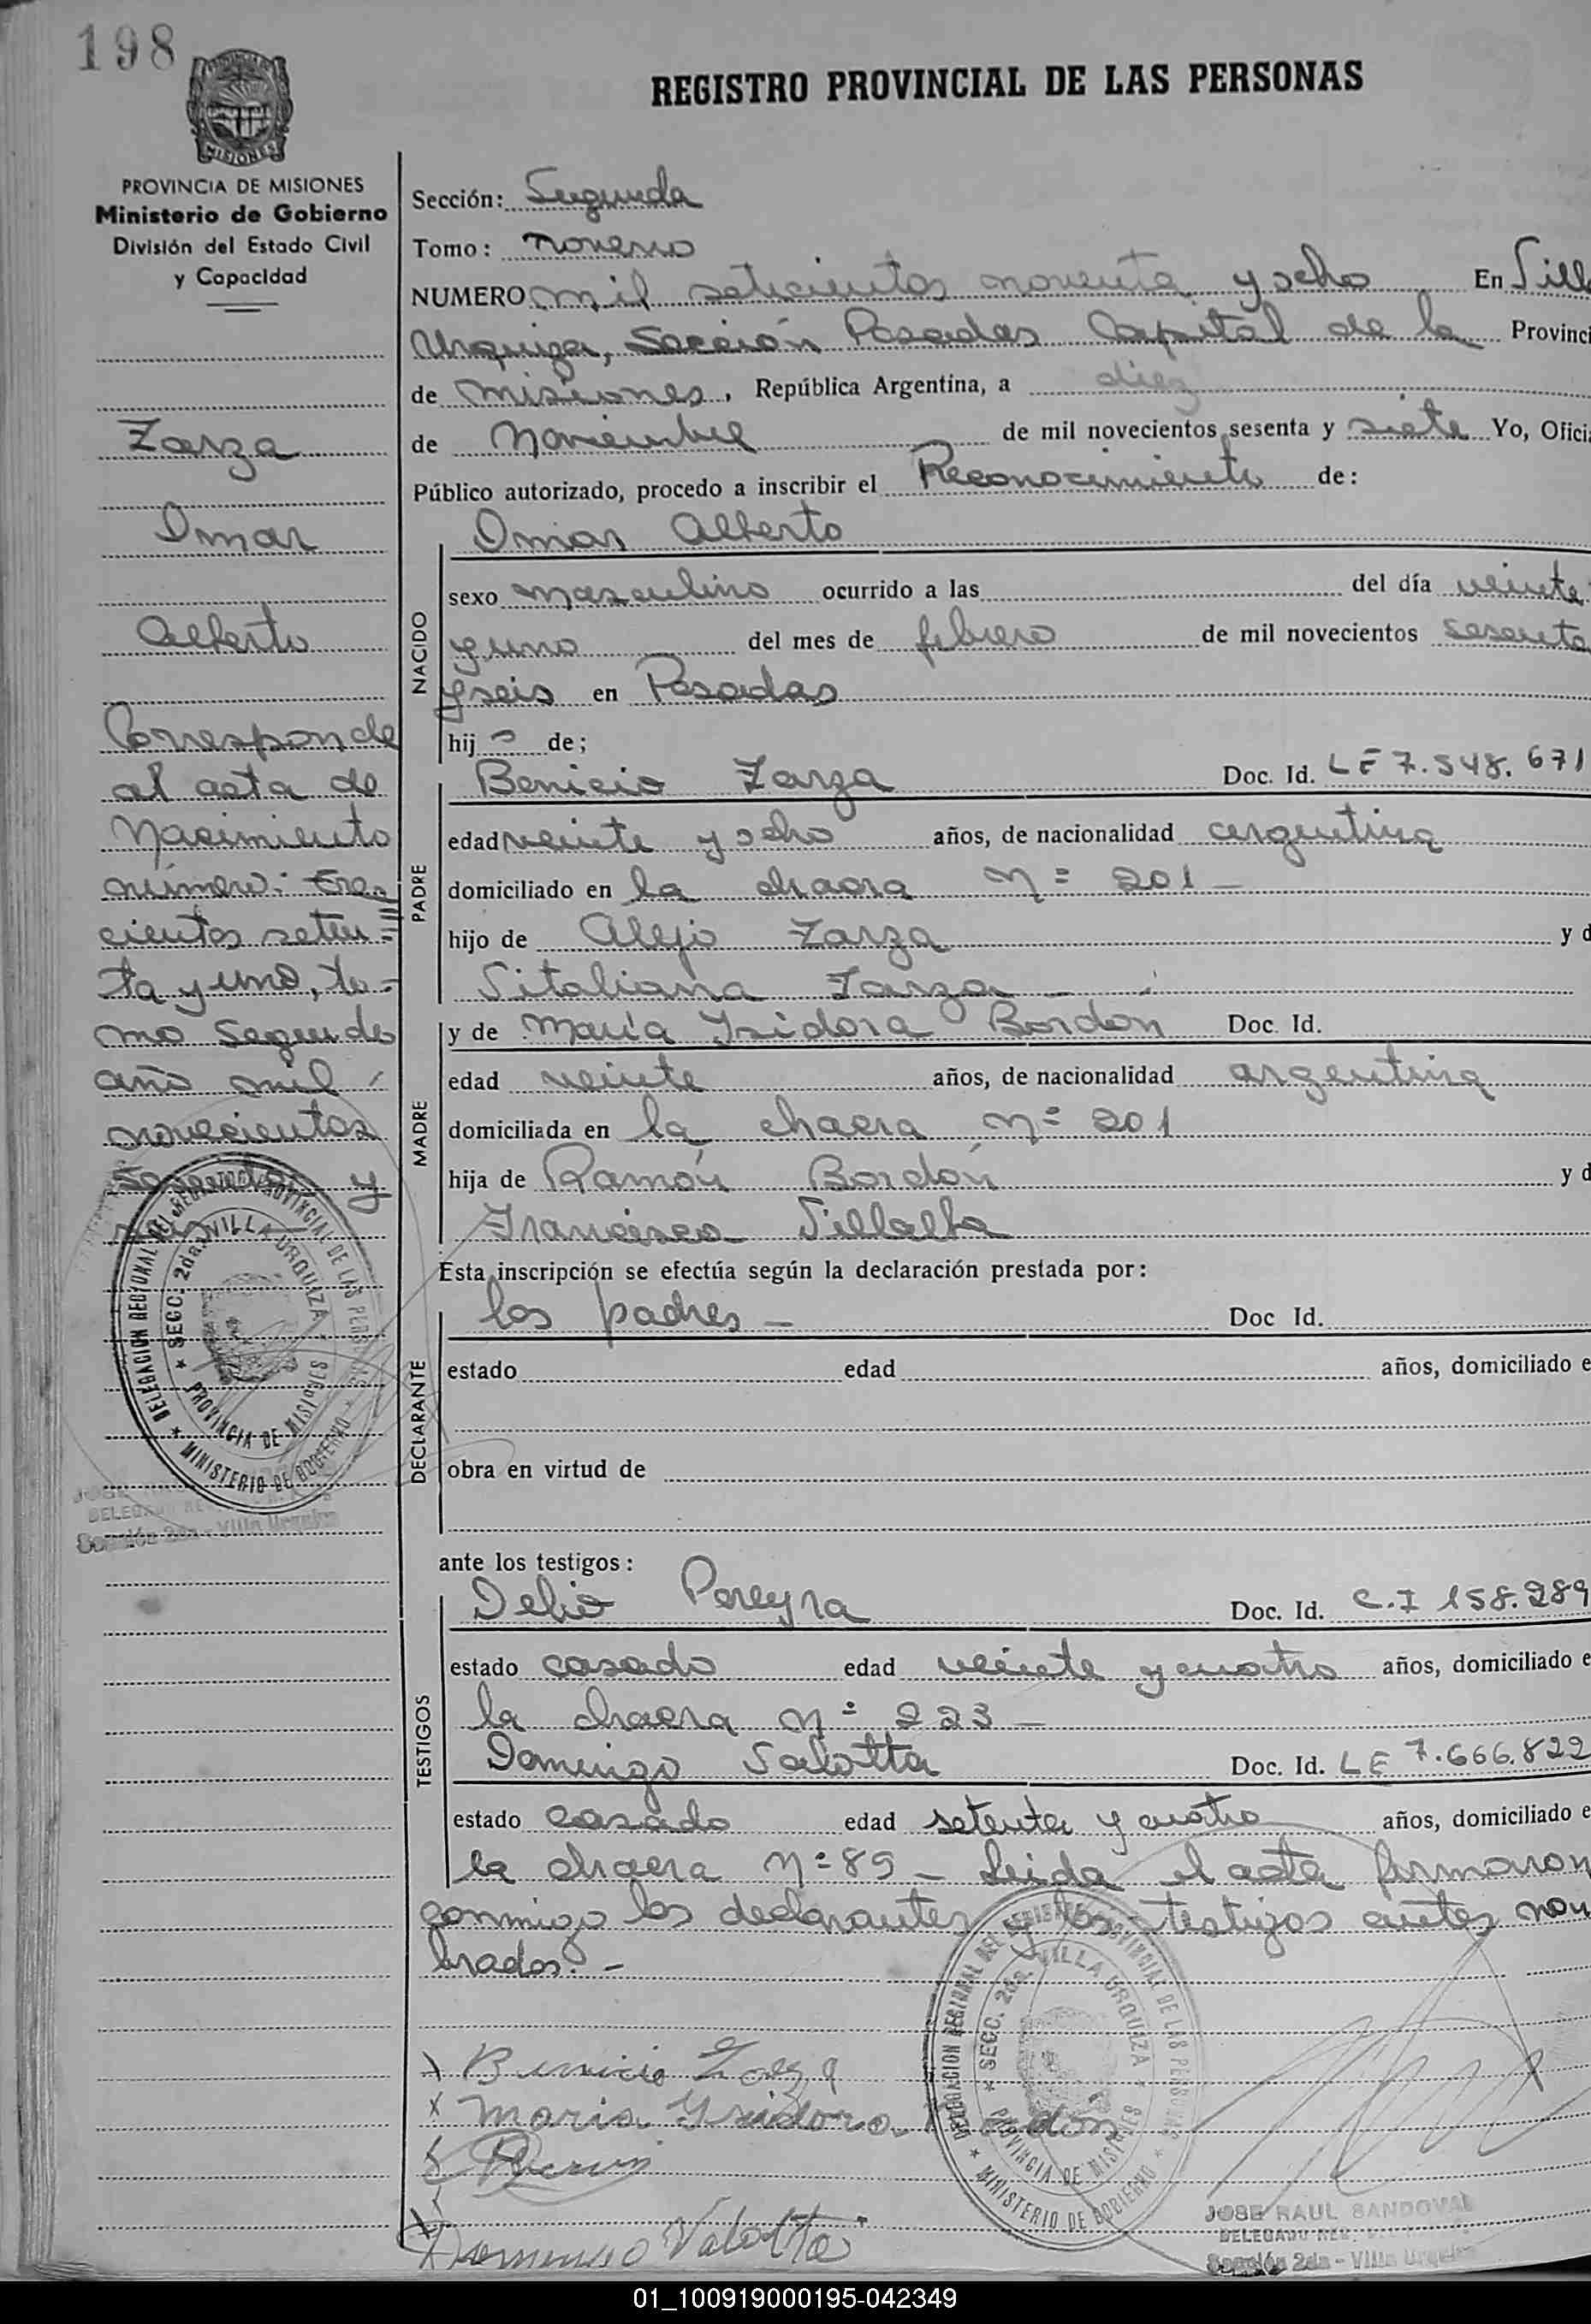 198
MISIONES
PROVINCIA DE MISIONES
Ministerio de Gobierno
División del Estado Civil
y Capacidad
Zarza
Omar
Alberto
Corresponde
al acta de
Nacimiento
número: tres
cientos seten=
ta y uno, to-
mo segundo
año mil
novecientos
sesenta y
seis
DELEGACION REGIONAL DEL REGISTRO PROVINCIAL DE LAS PERSONAS
* SECC. 2da. VILLA URQUIZA *
PROVINCIA DE MISIONES
* MINISTERIO DE GOBIERNO *
JOSE
DELEGADO REG
Sección 2da - Villa Urquiza
REGISTRO PROVINCIAL DE LAS PERSONAS
Sección: Segunda
Tomo: noveno
NUMERO mil setecientos noventa y ocho En Villa
Urquiza, Sección Posadas Capital de la Provinci
de Misiones, República Argentina, a diez
de Noviembre de mil novecientos sesenta y siete Yo, Ofici
Público autorizado, procedo a inscribir el Reconocimiento de:
NACIDO
Omar Alberto
sexo masculino ocurrido a las del día veinte
y uno del mes de febrero de mil novecientos sesenta
y seis en Posadas
hijo de;
PADRE
Benicio Zarza Doc. Id. LE 7.548.671
edad veinte y ocho años, de nacionalidad argentina
domiciliado en la chacra Nº 201 -
hijo de Alejo Zarza y d
Vitaliana Zarza -
MADRE
y de María Ysidora Bordon Doc. Id.
edad veinte años, de nacionalidad argentina
domiciliada en la chacra nº 201
hija de Ramón Bordón y d
Francisca Villalba
Esta inscripción se efectúa según la declaración prestada por:
DECLARANTE
los padres - Doc Id.
estado edad años, domiciliado e
obra en virtud de
ante los testigos:
TESTIGOS
Delio Pereyra Doc. Id. C.I 158.289
estado casado edad veinte y cuatro años, domiciliado e
la chacra nº 223 -
Domingo Valotta Doc. Id. LE 7.666.822
estado casado edad setenta y cuatro años, domiciliado e
la chacra nº 89 - Leida el acta firmaron
conmigo los declarantes y los testigos antes nom
brados. -
x Benicio Zarza
x Maria Ysidora Bordón
x
x Domingo Valotta
DELEGACION REGIONAL DEL REGISTRO PROVINCIAL DE LAS PERSONAS
* SECC. 2da. VILLA URQUIZA *
PROVINCIA DE MISIONES
* MINISTERIO DE GOBIERNO *
JOSE RAUL SANDOVAL
DELEGADO REG.
Sección 2da - Villa Urquiza
01_100919000195-042349